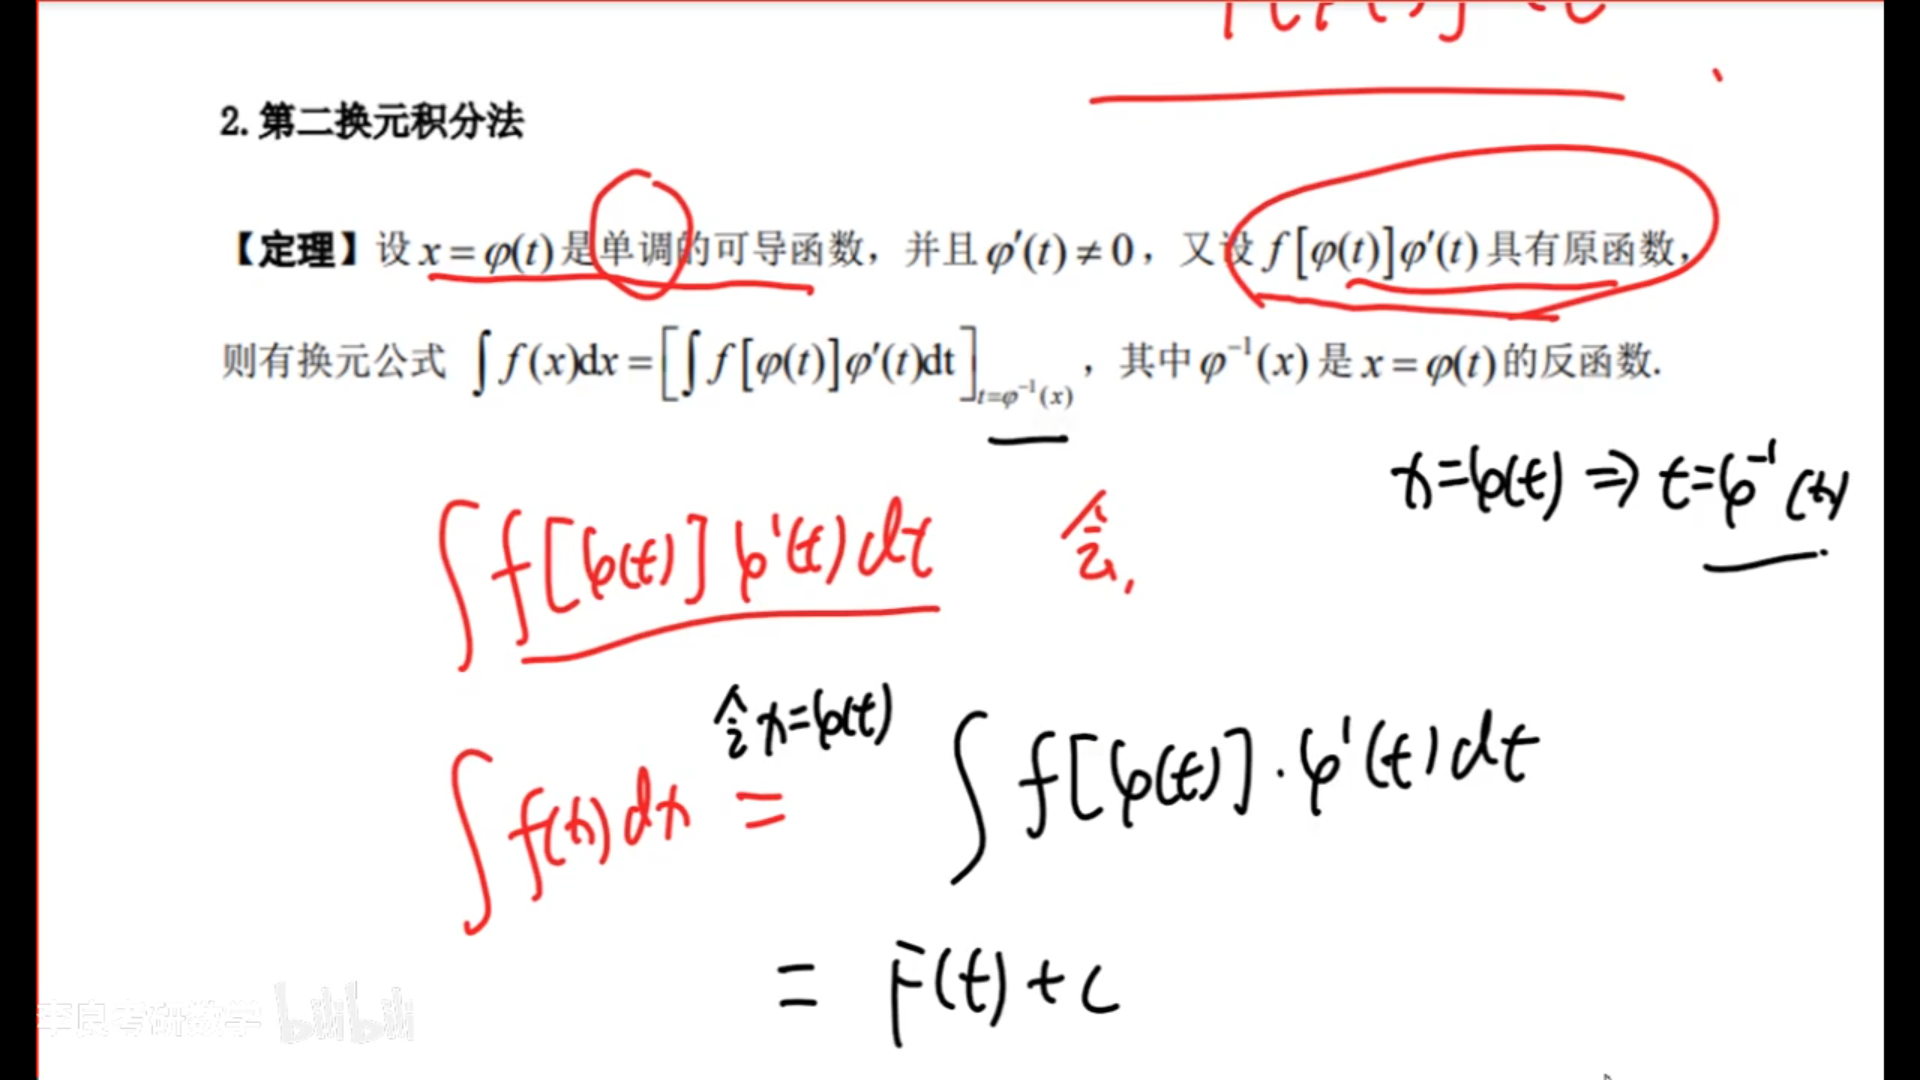 2.第二换元积分法
【定理】设 x = φ(t) 是单调的可导函数，并且 φ′(t) ≠ 0，又设 f[φ(t)]φ′(t) 具有原函数，
则有换元公式 ∫ f(x)dx = [∫ f[φ(t)]φ′(t)dt]_{t=φ⁻¹(x)}，其中 φ⁻¹(x) 是 x = φ(t) 的反函数.
x=φ(t) ⇒ t=φ⁻¹(x)
∫ f[φ(t)] φ′(t) dt 令,
令 x=φ(t)
∫ f(x) dx = ∫ f[φ(t)]·φ′(t) dt
= F(t)+C
李良考研数学 bilibili